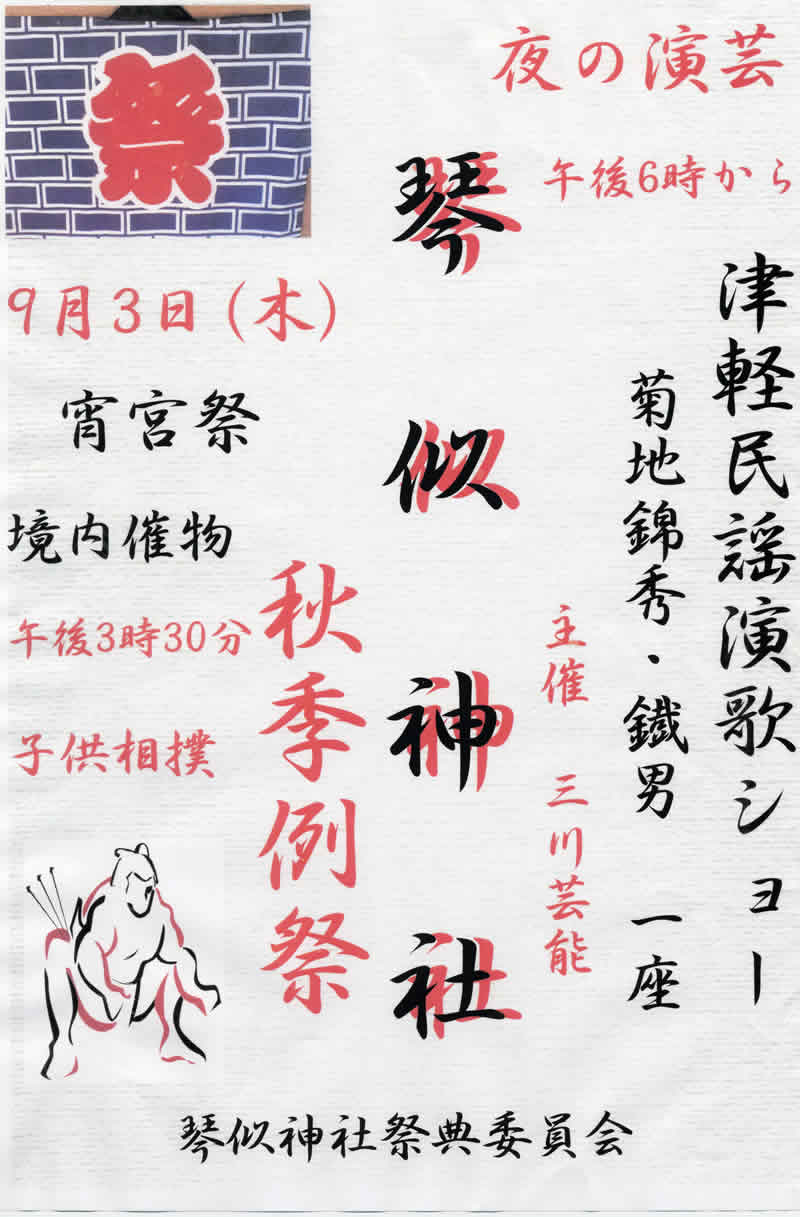 祭
夜の演芸
午後6時から
津軽民謡演歌ショー
菊地錦秀・鐵男 一座
主催 三川芸能
琴似神社
秋季例祭
9月3日(木)
宵宮祭
境内催物
午後3時30分
子供相撲
琴似神社祭典委員会